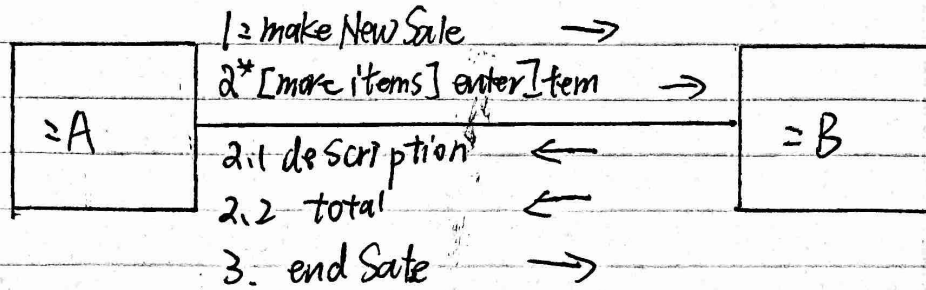 1: make New Sale →
2* [more items] enterItem →
:A
:B
2.1 description ←
2.2 total ←
3. end Sale →